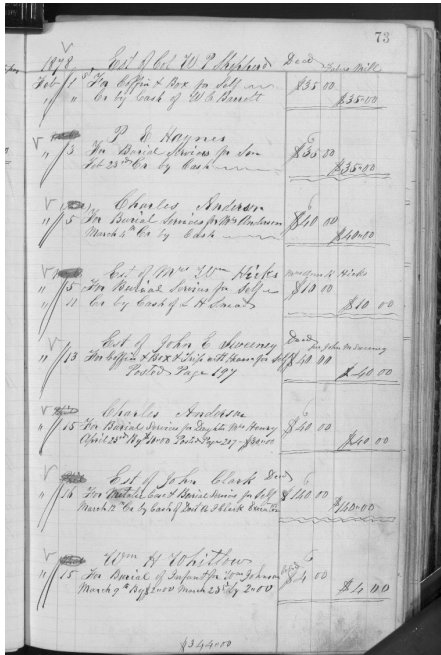 73
1878 Est of Col W P Shepherd Dead
Feb 1st For Coffin & Box for Self $35 00
" " Cr by Cash of W E Barrett $35-00
P E Haynes
" 3 For Burial Services for Son $35 00
Feb 23rd Cr by Cash $35-00
Charles Anderson
" 5 For Burial Services for Mrs Anderson $40 00
March 4th Cr by Cash $40-00
Est of Mrs Hicks Hicks
" 5 For Burial Service for Self $10 00
" 11 Cr by Cash of L H $10 00
Est of John E Sweeney Dead for John M Sweeney
" 13 For Coffin & Box & Trip with for Self $40 00
Posted Page 197 $40 00
Charles Anderson
" 15 For Burial Services for Daughter Mrs Henry $40 00
April 23rd By $10-00 Posted Page 217 - $30-00 $40 00
Est of John Clark Dead
" 16 For Metalic Case & Burial Service for Self $140 00
March Cr by Cash of Clark Executor $140-00
Wm H Whitlow
" 15 For Burial of Infant for Wm Johnson $4 00
March 9th By $2-00 March 23rd by 2-00 $4 00
$344-00